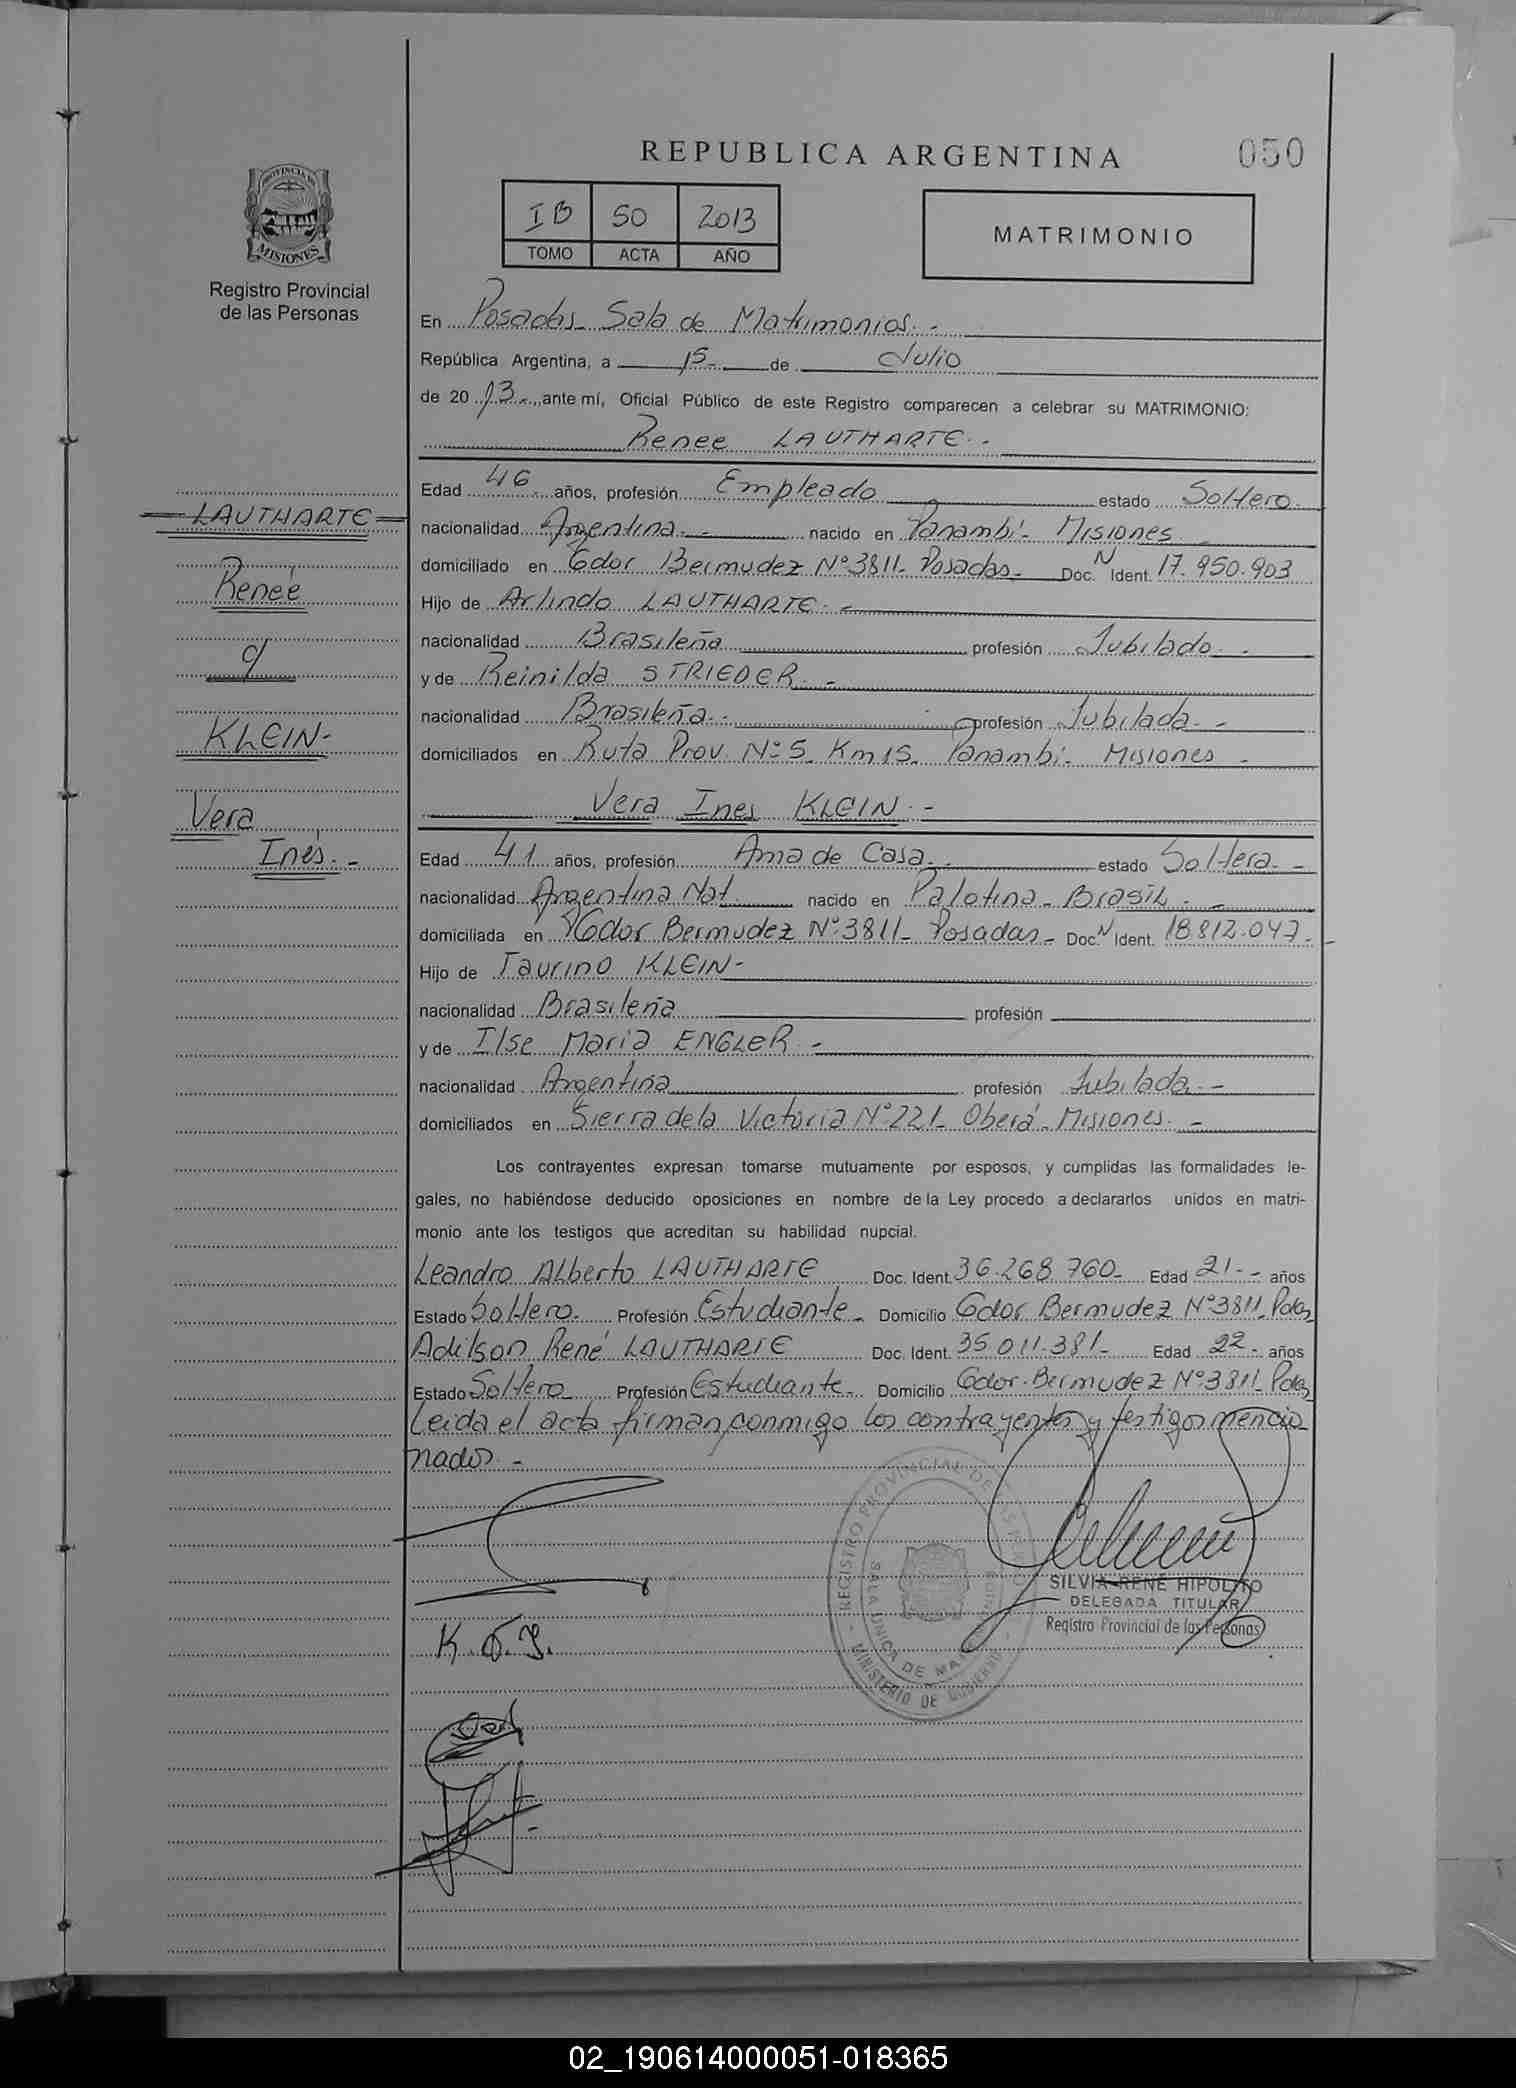 REPUBLICA ARGENTINA
050
PROVINCIA DE
MISIONES
Registro Provincial
de las Personas
IB 50 2013
TOMO ACTA AÑO
MATRIMONIO
En Posadas Sala de Matrimonios.-
República Argentina, a 15 de Julio
de 2013 ante mí, Oficial Público de este Registro comparecen a celebrar su MATRIMONIO:
Renee LAUTHARTE.-
Edad 46 años, profesión Empleado estado Soltero.
nacionalidad Argentina.- nacido en Panambí- Misiones
domiciliado en Gdor Bermudez N°3811- Posadas- Doc. N Ident. 17.950.903
Hijo de Arlindo LAUTHARTE.-
nacionalidad Brasileña profesión Jubilado.-
y de Reinilda STRIEDER.-
nacionalidad Brasileña.- profesión Jubilada.-
domiciliados en Ruta Prov. N°5 Km 15 Panambí- Misiones -
Vera Ines KLEIN.-
Edad 41 años, profesión Ama de Casa.- estado Soltera.-
nacionalidad Argentina Nat. nacido en Palotina- Brasil.-
domiciliada en Gdor Bermudez N°3811- Posadas- Doc. N Ident. 18.812.047.-
Hijo de Taurino KLEIN-
nacionalidad Brasileña profesión
y de Ilse Maria ENGLER.-
nacionalidad Argentina profesión Jubilada.-
domiciliados en Sierra de la Victoria N°221- Oberá- Misiones.-
Los contrayentes expresan tomarse mutuamente por esposos, y cumplidas las formalidades le-
gales, no habiéndose deducido oposiciones en nombre de la Ley procedo a declararlos unidos en matri-
monio ante los testigos que acreditan su habilidad nupcial.
Leandro Alberto LAUTHARTE Doc. Ident. 36.268.760- Edad 21.- años
Estado Soltero. Profesión Estudiante- Domicilio Gdor Bermudez N°3811- Pdas
Adilson René LAUTHARTE Doc. Ident. 35.011.381- Edad 22- años
Estado Soltero Profesión Estudiante- Domicilio Gdor. Bermudez N°3811- Pdas
Leida el acta firman conmigo los contrayentes y testigos mencio
nados.-
LAUTHARTE
Renée
c/
KLEIN-
Vera
Inés.-
K.
REGISTRO PROVINCIAL DE LAS
SALA UNICA DE
MINISTERIO DE GOBIERNO
SILVIA RENÉ HIPOLITO
DELEGADA TITULAR
Registro Provincial de las Personas
02_190614000051-018365